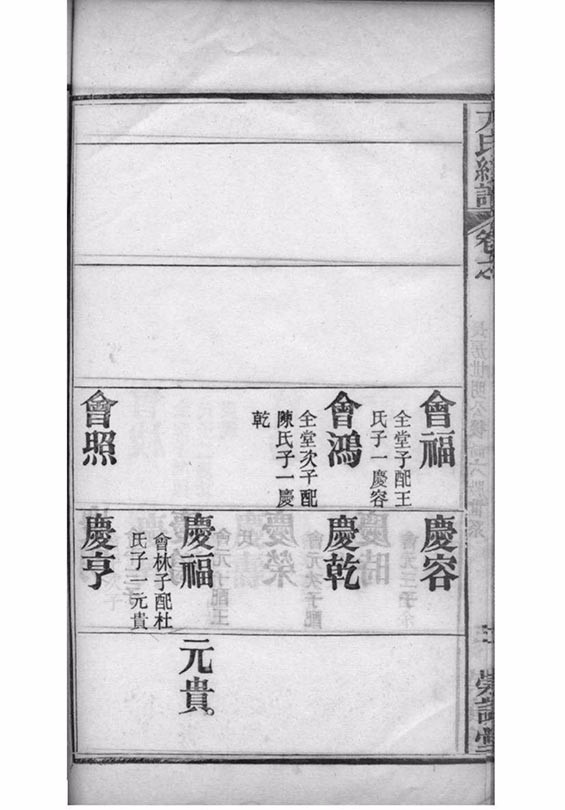 會福
全堂子配王
氏子一慶容
會鴻
全堂次子配
陳氏子一慶
乾
會照
慶容
慶乾
慶福
會林子配杜
氏子一元貴
慶亨
元貴